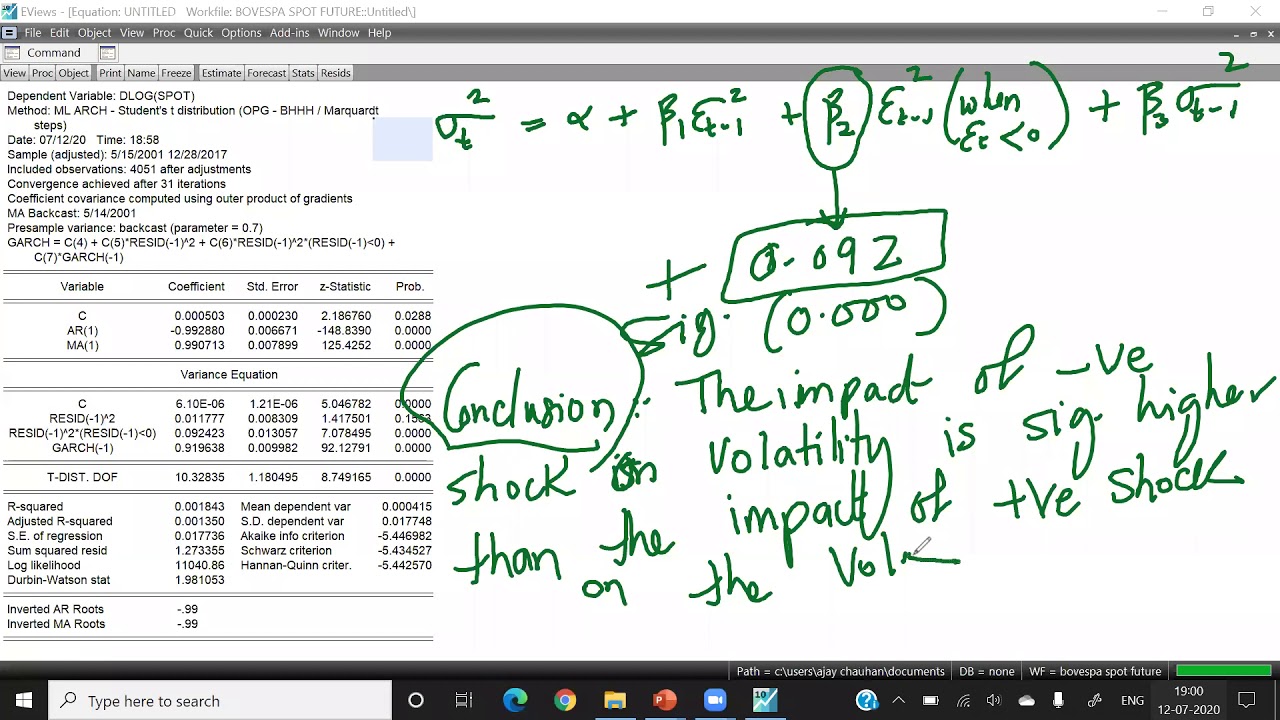 EViews - [Equation: UNTITLED   Workfile: BOVESPA SPOT FUTURE::Untitled\]
File Edit Object View Proc Quick Options Add-ins Window Help
Command
View Proc Object Print Name Freeze Estimate Forecast Stats Resids
Dependent Variable: DLOG(SPOT)
Method: ML ARCH - Student's t distribution (OPG - BHHH / Marquardt
steps)
Date: 07/12/20   Time: 18:58
Sample (adjusted): 5/15/2001 12/28/2017
Included observations: 4051 after adjustments
Convergence achieved after 31 iterations
Coefficient covariance computed using outer product of gradients
MA Backcast: 5/14/2001
Presample variance: backcast (parameter = 0.7)
GARCH = C(4) + C(5)*RESID(-1)^2 + C(6)*RESID(-1)^2*(RESID(-1)<0) +
C(7)*GARCH(-1)
Variable Coefficient Std. Error z-Statistic Prob.
C 0.000503 0.000230 2.186760 0.0288
AR(1) -0.992880 0.006671 -148.8390 0.0000
MA(1) 0.990713 0.007899 125.4252 0.0000
Variance Equation
C 6.10E-06 1.21E-06 5.046782 0.0000
RESID(-1)^2 0.011777 0.008309 1.417501
RESID(-1)^2*(RESID(-1)<0) 0.092423 0.013057 7.078495 0.0000
GARCH(-1) 0.919638 0.009982 92.12791 0.0000
T-DIST. DOF 10.32835 1.180495 8.749165 0.0000
R-squared 0.001843 Mean dependent var 0.000415
Adjusted R-squared 0.001350 S.D. dependent var 0.017748
S.E. of regression 0.017736 Akaike info criterion -5.446982
Sum squared resid 1.273355 Schwarz criterion -5.434527
Log likelihood 11040.86 Hannan-Quinn criter. -5.442570
Durbin-Watson stat 1.981053
Inverted AR Roots -.99
Inverted MA Roots -.99
σ²t = α + β₁ε²t-1 + β₂ ε²t-1 (when εt<0) + β₃ σ²t-1
0.092
+
sig. (0.000)
Conclusion:- The impact of -ve
shock on volatility is sig. higher
than the impact of +ve shock
on the Vol
Path = c:\users\ajay chauhan\documents DB = none WF = bovespa spot future
Type here to search
ENG
19:00
12-07-2020